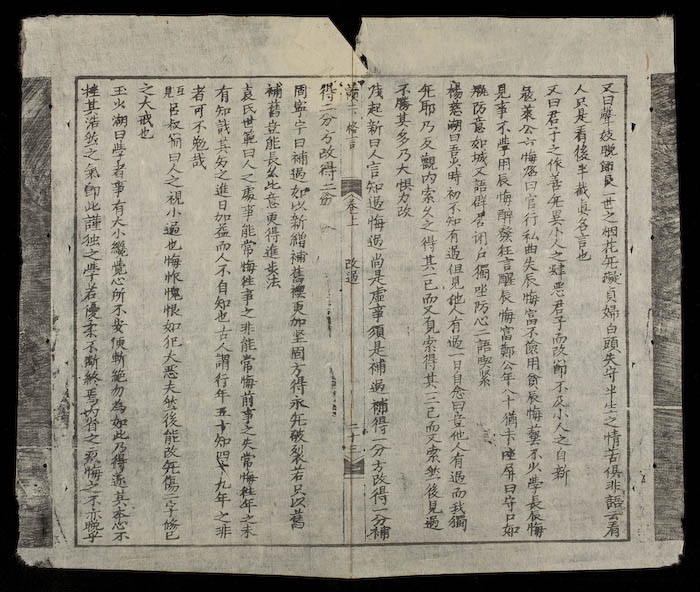 又曰聲妓晚節良一世之烟花无礙貞婦白頭失守半生之情苦俱非語云看
人只是看後半截真名言也
又曰君子之作善无異小人之肆惡君子而改節不及小人之自新
寇萊公六悔銘曰官行私曲失辰悔富不儉用貧辰悔藝不少學長辰悔
見事不學用辰悔醉發狂言醒辰悔富鄭公年八十猶書座屏曰守口如
瓶防意如城又語群居閉口獨坐防心二語喫緊
楊慈湖曰吾少時初不知有過但見他人有過一日自念曰豈他人有過而我獨
无耶乃反觀內索久之得其一已而又見索得其二三已而又索然後見過
不勝其多乃大懼力改
茂起新曰人言知過悔過尚是虛事須是補過補得一分方改得一分補
得二分方改得二分
卷上 改過 二十三
周寧宇曰補過如以新繒補舊襖更加坚固方得永无破裂若只以舊
補舊豈能長久此意更得進步法
袁氏世範曰人之處事能常悔徃事之非能常悔前事之失常悔徃年之未
有知識其為之進日加益而人不自知也古人謂行年五十知四十九年之非
者可不勉哉
呂叔簡曰人之視小過也悔怍愧恨如犯大惡夫然後能改无傷二字修己
之大戒也
玉火湖曰學者事有大小纔覺心所不安便斬絕勿為如此乃得遂其本心不
挫其浩然之氣即此謹独之學若優柔不斷終焉內省之疚悔之不亦晚乎